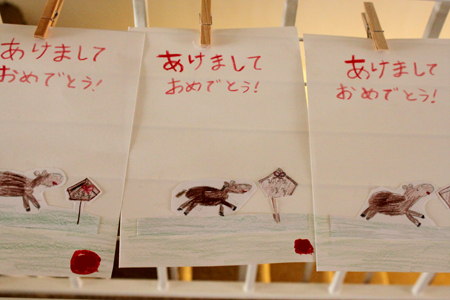 あけまして
おめでとう!
あけまして
おめでとう!
あけまして
おめでとう!